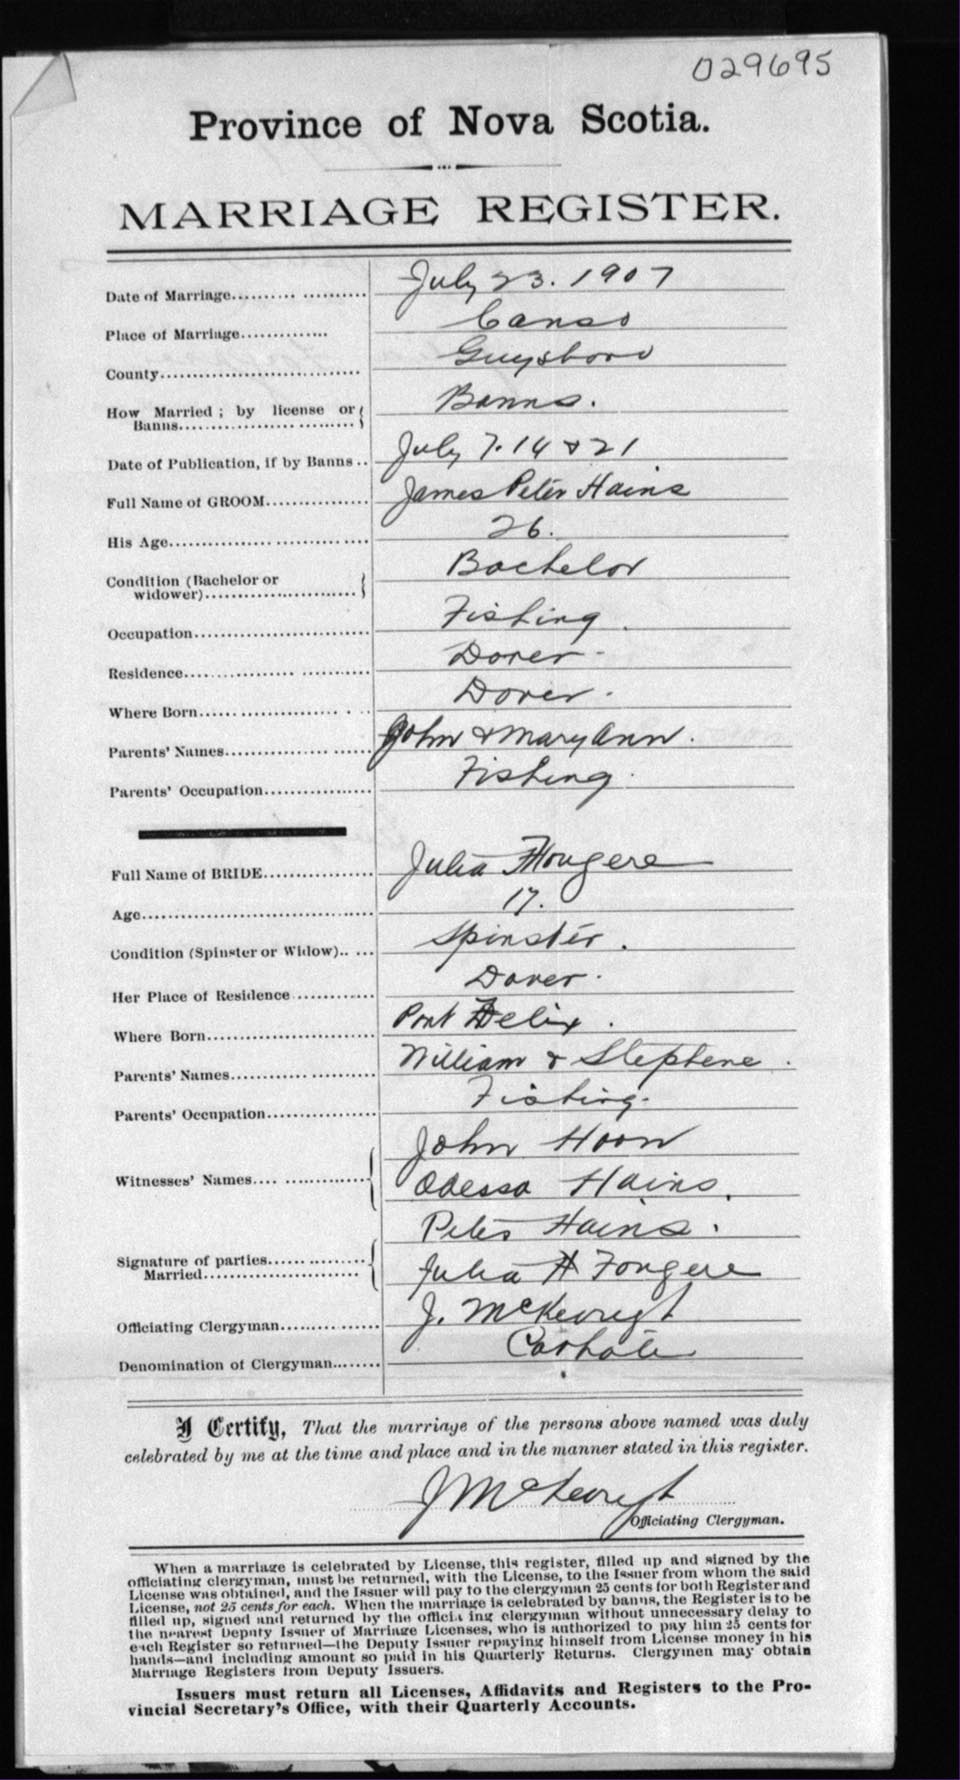 029695
Province of Nova Scotia.
MARRIAGE REGISTER.
Date of Marriage.......... .......... July 23. 1907
Place of Marriage............. Canso
County.............................. Guysboro
How Married ; by license or
Banns........................... Banns.
Date of Publication, if by Banns .. July 7. 14 & 21
Full Name of GROOM............... James Peter Hains
His Age.............................. 26.
Condition (Bachelor or
widower)........................ Bachelor
Occupation.......................... Fishing.
Residence............................ Dover-
Where Born.......................... Dover.
Parents' Names..................... John & Mary Ann.
Parents' Occupation................ Fishing.
Full Name of BRIDE................ Julia Fougere
Age.................................... 17.
Condition (Spinster or Widow).. ... Spinster.
Her Place of Residence............ Dover.
Where Born.......................... Port Felix.
Parents' Names..................... William & Stephene.
Parents' Occupation................ Fishing.
John Hoon
Witnesses' Names.... ............ Odessa Hains.
Peter Hains.
Signature of parties...............
Married........................ Julia H Fougere
Officiating Clergyman.............. J. McKeough
Denomination of Clergyman........
I Certify, That the marriage of the persons above named was duly
celebrated by me at the time and place and in the manner stated in this register.
J McKeough
Officiating Clergyman.
When a marriage is celebrated by License, this register, filled up and signed by the
officiating clergyman, must be returned, with the License, to the Issuer from whom the said
License was obtained, and the Issuer will pay to the clergyman 25 cents for both Register and
License, not 25 cents for each. When the marriage is celebrated by banns, the Register is to be
filled up, signed and returned by the officiating clergyman without unnecessary delay to
the nearest Deputy Issuer of Marriage Licenses, who is authorized to pay him 25 cents for
each Register so returned—the Deputy Issuer repaying himself from License money in his
hands—and including amount so paid in his Quarterly Returns. Clergymen may obtain
Marriage Registers from Deputy Issuers.
Issuers must return all Licenses, Affidavits and Registers to the Pro-
vincial Secretary's Office, with their Quarterly Accounts.